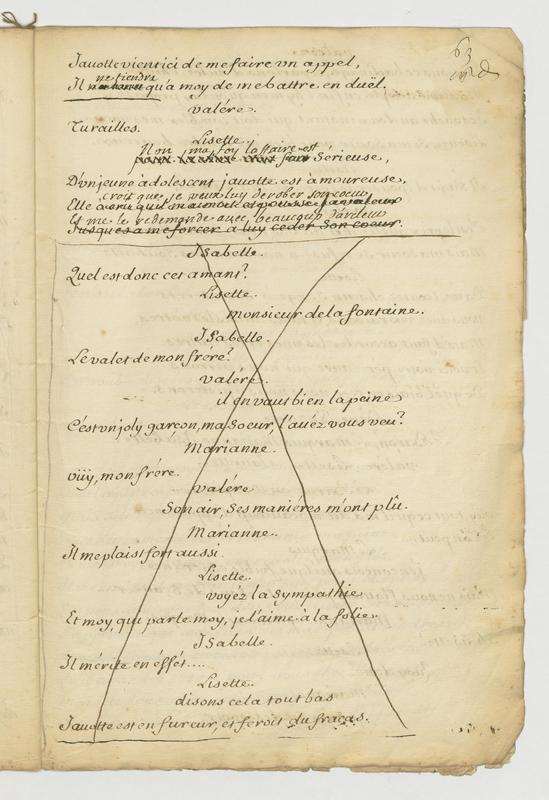 63
Javotte vient ici de me faire vn appel,
ne tiendra
Il qu'a moy de me battre en duël.
valére.
Turailles.
Lisette.
Non ma foy laffaire est
Sérieuse,
D'vn jeune adolescent javotte est amoureuse,
croit que je veux luy derober son coeur
Elle
Et me le redemande avec beaucoup d'ardeur
Jusques a me forcer a luy ceder Son coeur.
Isabelle.
Quel est donc cet amant?
Lisette.
monsieur de la fontaine.
Isabelle.
Le valet de mon frére?
valére.
il en vaut bien la peine
C'est vn joly garçon, ma Soeur, l'auéz vous veu?
Marianne.
vüy, mon frére.
valére
Son air, Ses maniéres m'ont plû.
Marianne.
Il me plaist fort aussi.
Lisette.
voyéz la Sympathie
Et moy, qui parle moy, je l'aime à la folie.
Isabelle.
Il mérite en éffét....
Lisette.
disons cela tout bas
Javotte est en fureur, et feroit du fracas.